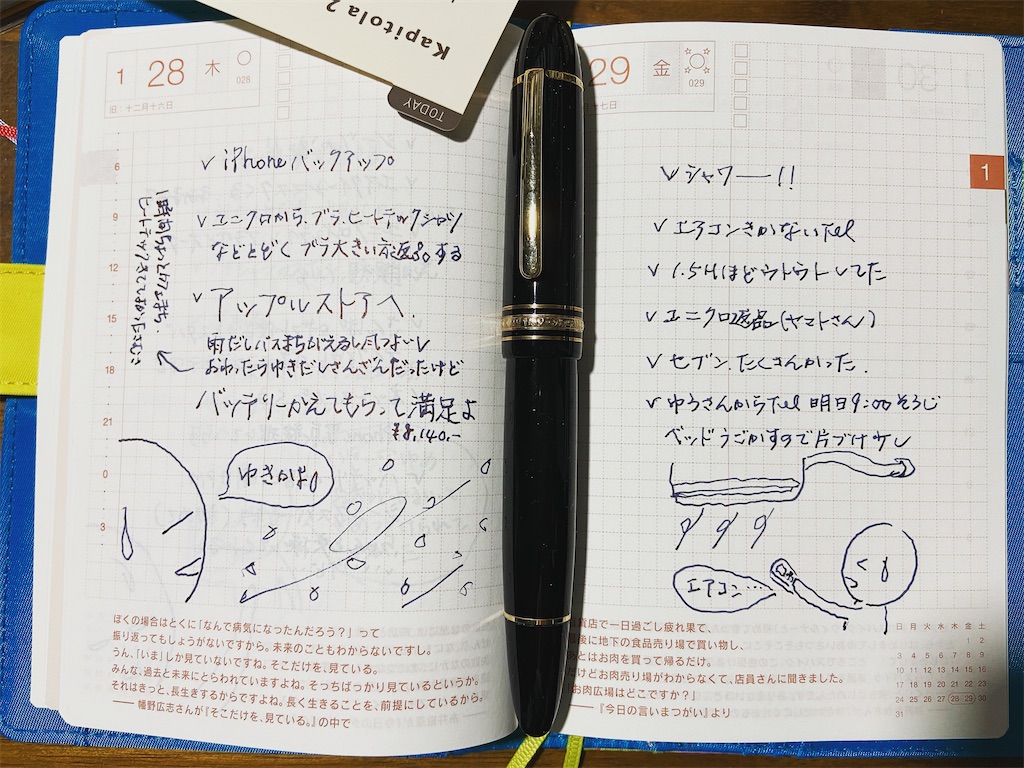 Kapitola 2
TODAY
1 28 木
028
旧：十二月十六日
6
9
12
15
18
21
0
3
✓ iPhone バックアップ
✓ ユニクロから、ブラ、ヒートテックシャツ
などとどく ブラ大きい方返品する
✓ アップルストアへ.
雨だしバスまちがえるしたしつよい✓
おわったらゆきだしさんざんだったけど
バッテリーかえてもらって満足よ
¥8,140.-
ゆきかよ。
ぼくの場合はとくに「なんで病気になったんだろう？」って
振り返ってもしょうがないですから。未来のこともわからないですし。
うん、「いま」しか見ていないですね。そこだけを、見ている。
みんな、過去と未来にとらわれていますよね。そっちばっかり見ているというか。
それはきっと、長生きするからですよね。長く生きることを、前提にしているから。
―― 幡野広志さんが『そこだけを、見ている。』の中で
29 金
029
七日
1
✓ シャワー!!
✓ エアコンきかないTel
✓ 1.5Hほどウトウトしてた
✓ ユニクロ返品(ヤマトさん)
✓ セブン、たくさんかった.
✓ ゆうさんからTel 明日9:00そうじ
ベッドうごかすので片づけ
エアコン…
貨店で一日過ごし疲れ果て、
後に地下の食品売り場で買い物し、
とはお肉を買って帰るだけ。
だけどお肉売り場がわからなくて、店員さんに聞きました。
お肉広場はどこですか？」
――『今日の言いまつがい』より
日 月 火 水 木 金 土
1 2
3 4 5 6 7 8 9
10 11 12 13 14 15 16
17 18 19 20 21 22 23
24 25 26 27 28 29 30
31